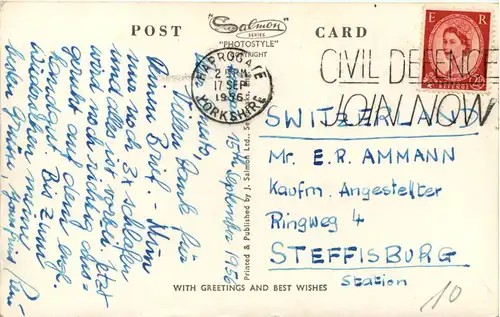 POST
Salmon
SERIES
"PHOTOSTYLE"
COPYRIGHT
CARD
E R
REVENUE
HARROGATE
2 PM
17 SEP
1956
YORKSHIRE
CIVIL DEFENCE
JOIN NOW
Harrogate,
15th September 1956
Vielen Dank für
Deinen Brief. - Nun
nur noch 3x schlafen
und alles ist vorbei. Jetzt
wird noch richtig aus-
geruht auf dem engl.
Landgut. Bis zum
Wiedersehen meine
besten Grüsse,
Printed & Published by J. Salmon Ltd., Se
SWITZERLAND
Mr. E.R. AMMANN
Kaufm. Angestellter
Ringweg 4
STEFFISBURG
Station
WITH GREETINGS AND BEST WISHES
10